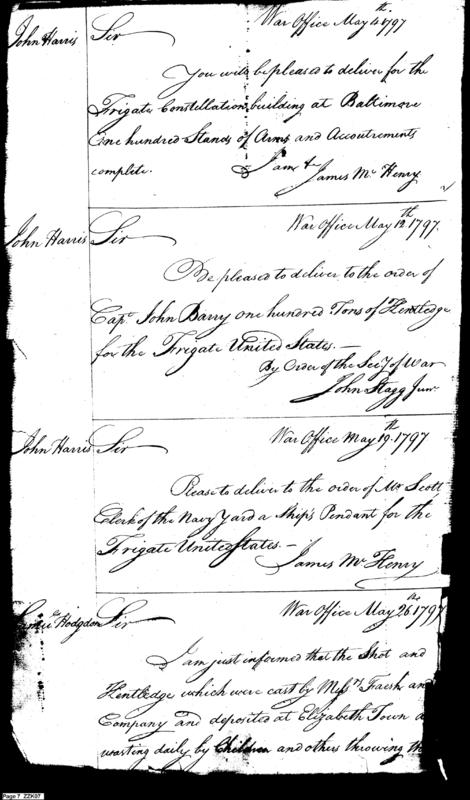 War Office May 4th 1797
John Harris Sir
You will be pleased to deliver for the
Frigate Constellation building at Baltimore
One hundred Stands of Arms and Accoutrements
complete. I am &
James McHenry
War Office May 12th 1797.
John Harris Sir
Be pleased to deliver to the order of
Capt John Barry one hundred Tons of Kentledge
for the Frigate United States.—
By Order of the Secy of War
John Stagg Junr
War Office May 19th 1797
John Harris Sir
Please to deliver to the order of Mr Scott
Clerk of the Navy Yard a Ship's Pendant for the
Frigate United States.—
James McHenry
War Office May 26th 1797
Hodgdon Sir
I am just informed that the Shot and
Kentledge which were cast by Messrs and
Company and deposited at Elizabeth Town
wasting daily by Children and others throwing
Page 7 ZZK07